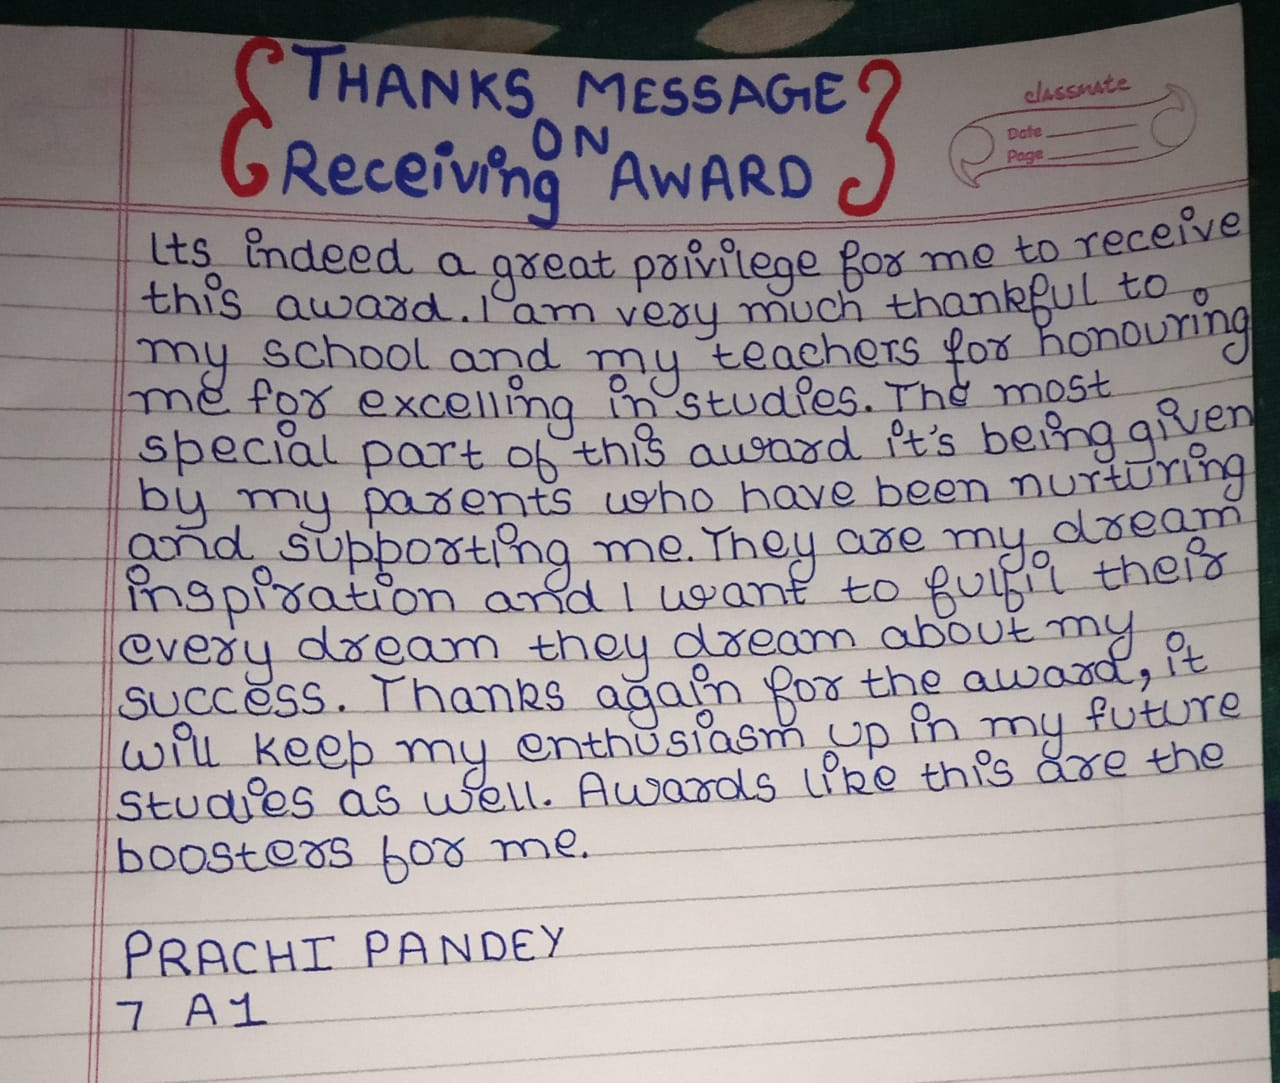 THANKS MESSAGE
ON
Receiving AWARD
classmate
Date
Page
Its indeed a great privilege for me to receive
this award. I am very much thankful to
my school and my teachers for honouring
me for excelling in studies. The most
special part of this award it's being given
by my parents who have been nurturing
and supporting me. They are my dream
inspiration and I want to fulfil their
every dream they dream about my
success. Thanks again for the award, it
will keep my enthusiasm up in my future
studies as well. Awards like this are the
boosters for me.
PRACHI PANDEY
7 A1